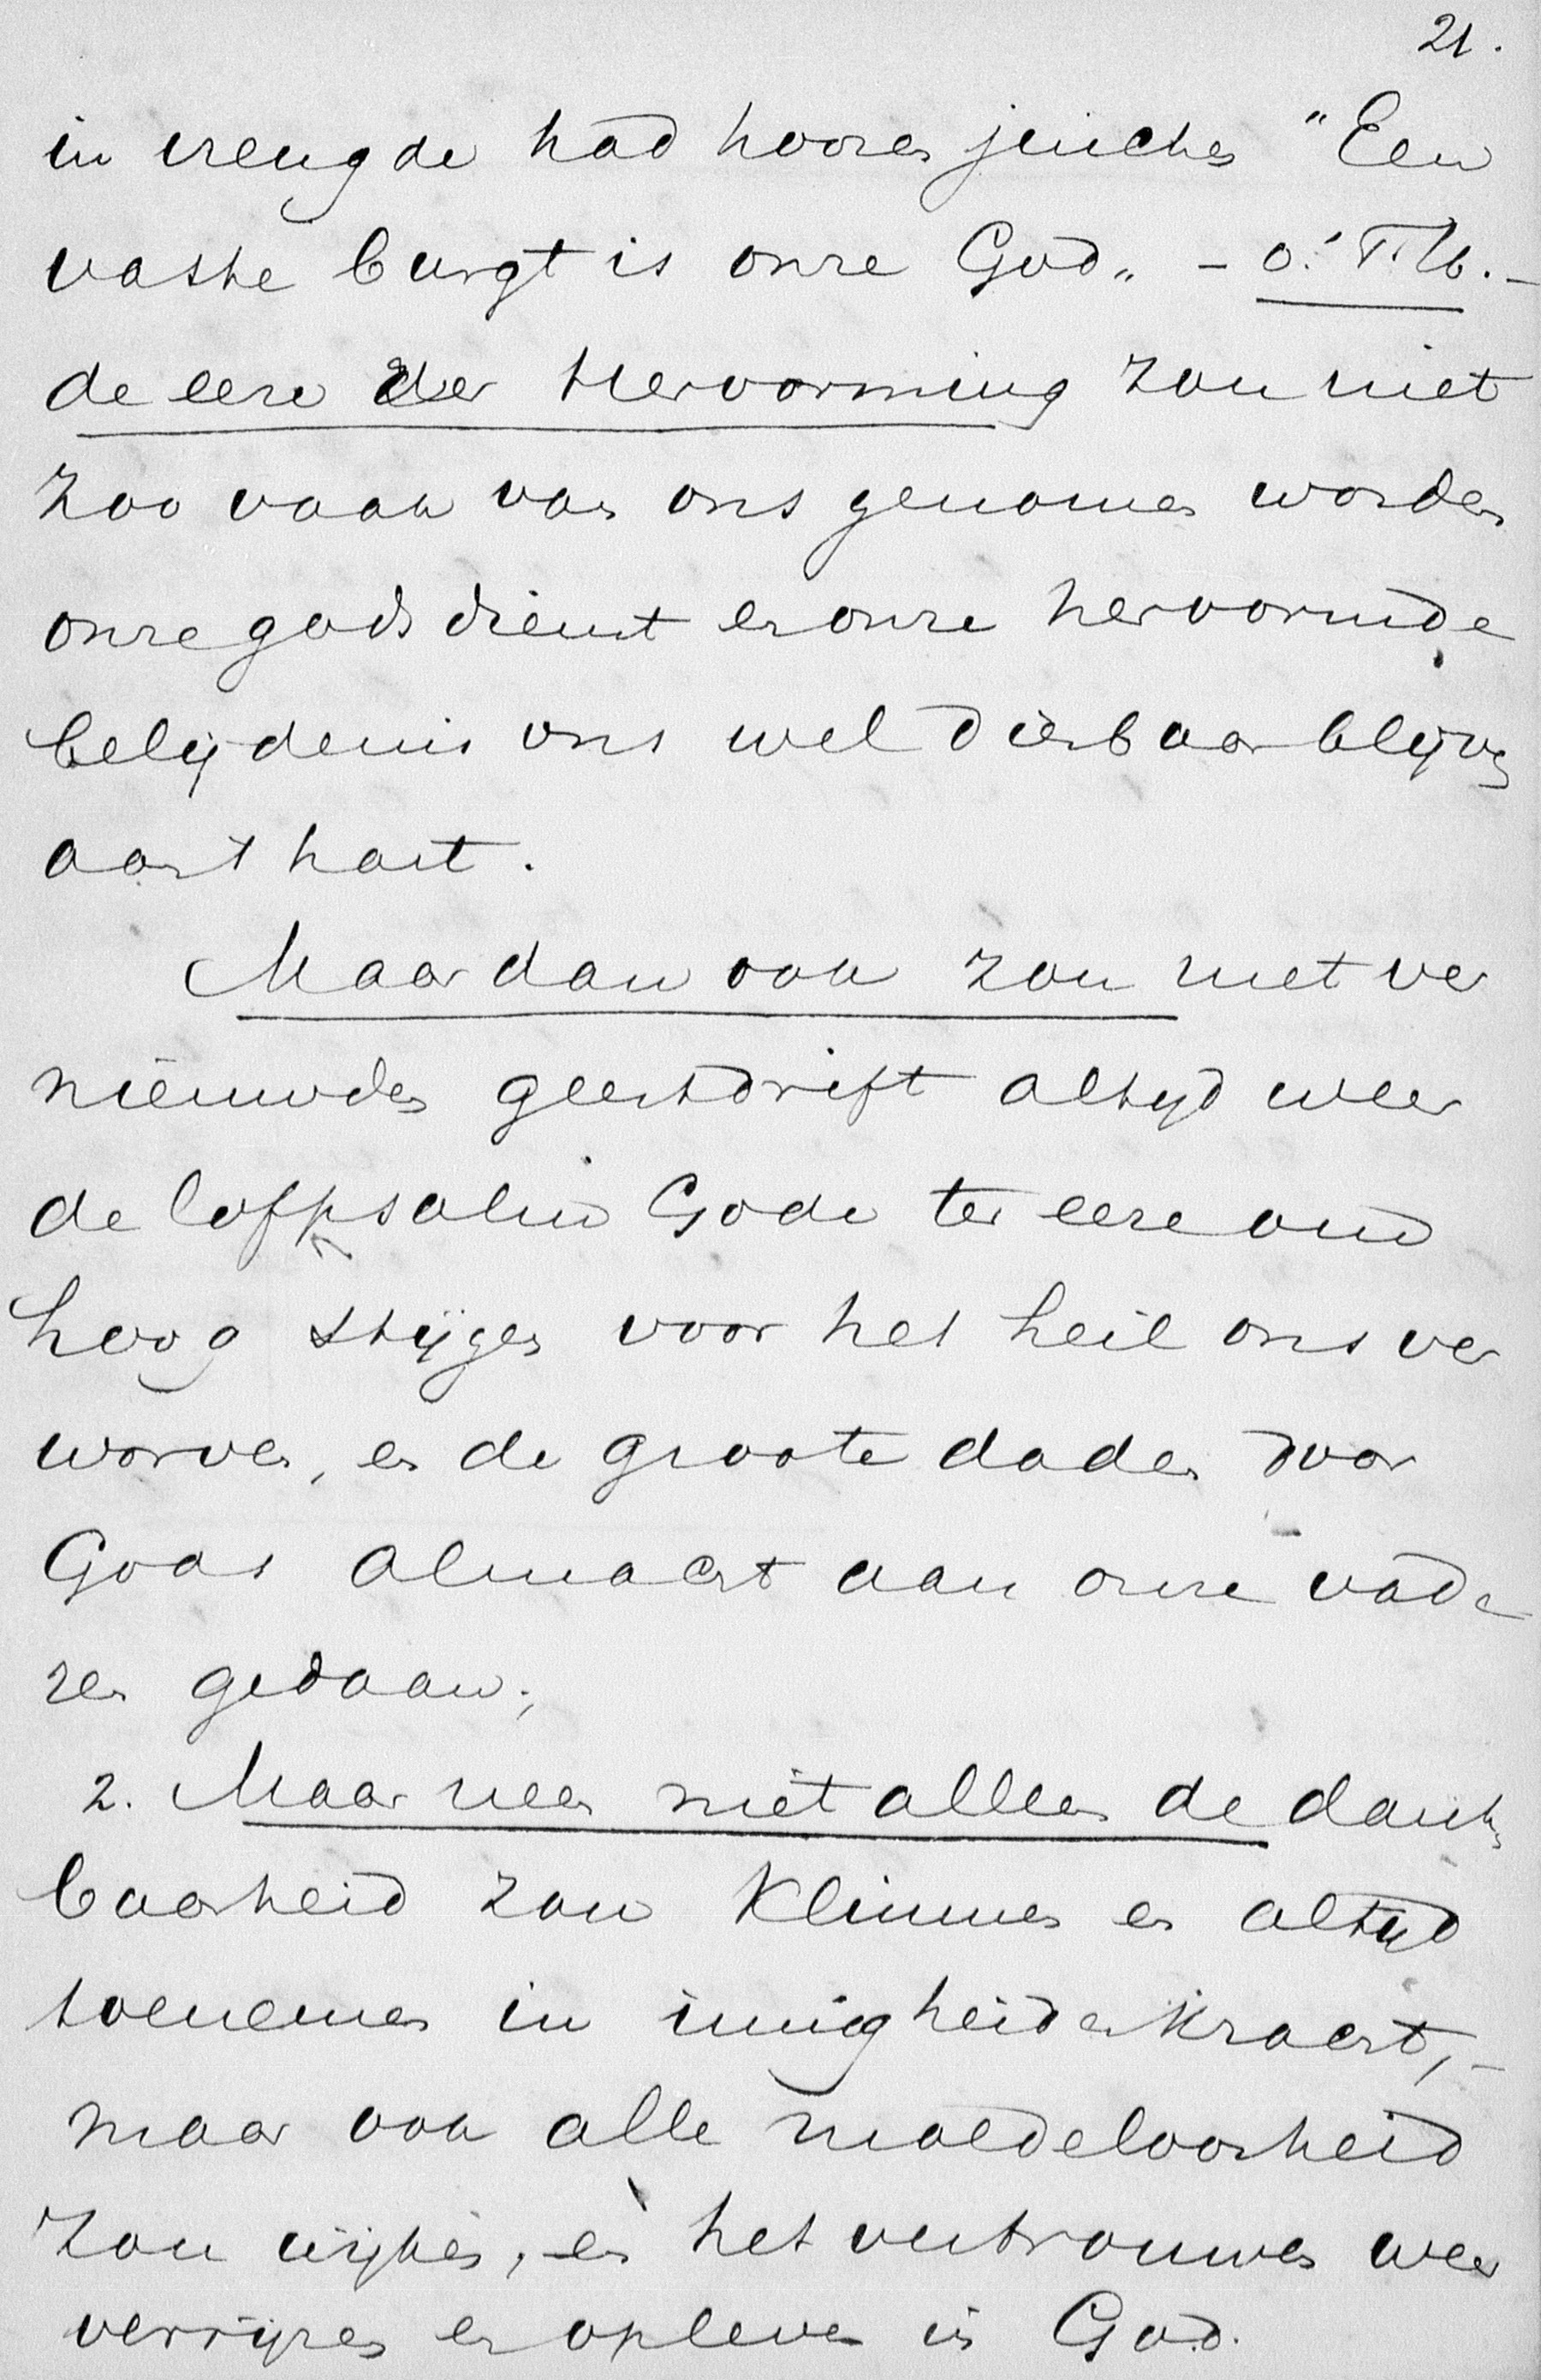 21.
in vreugde had hooren juichen "Een
vaste burgt is onze God„ -
de eere der Hervorming zou niet
zoo vaak van ons genomen worden
onze godsdienst en onze hervormde
belijdenis ons wel dierbaar blijven
aan 't hart.
Maar dan ook zou met ver
nieuwden geestdrift altijd weer
de lofpsalm Gode ter eere om
hoog stijgen voor het heil ons ver
worven, en de groote daden door
Gods almacht aan onze vade
ren gedaan;
2. Maar neen niet alleen de dank
baarheid zou klimmen en altijd
toenemen in innigheid en kracht, -
maar ook alle moedeloosheid
zou wijken, en het vertrouwen weer
verrijzen en opleven in God.